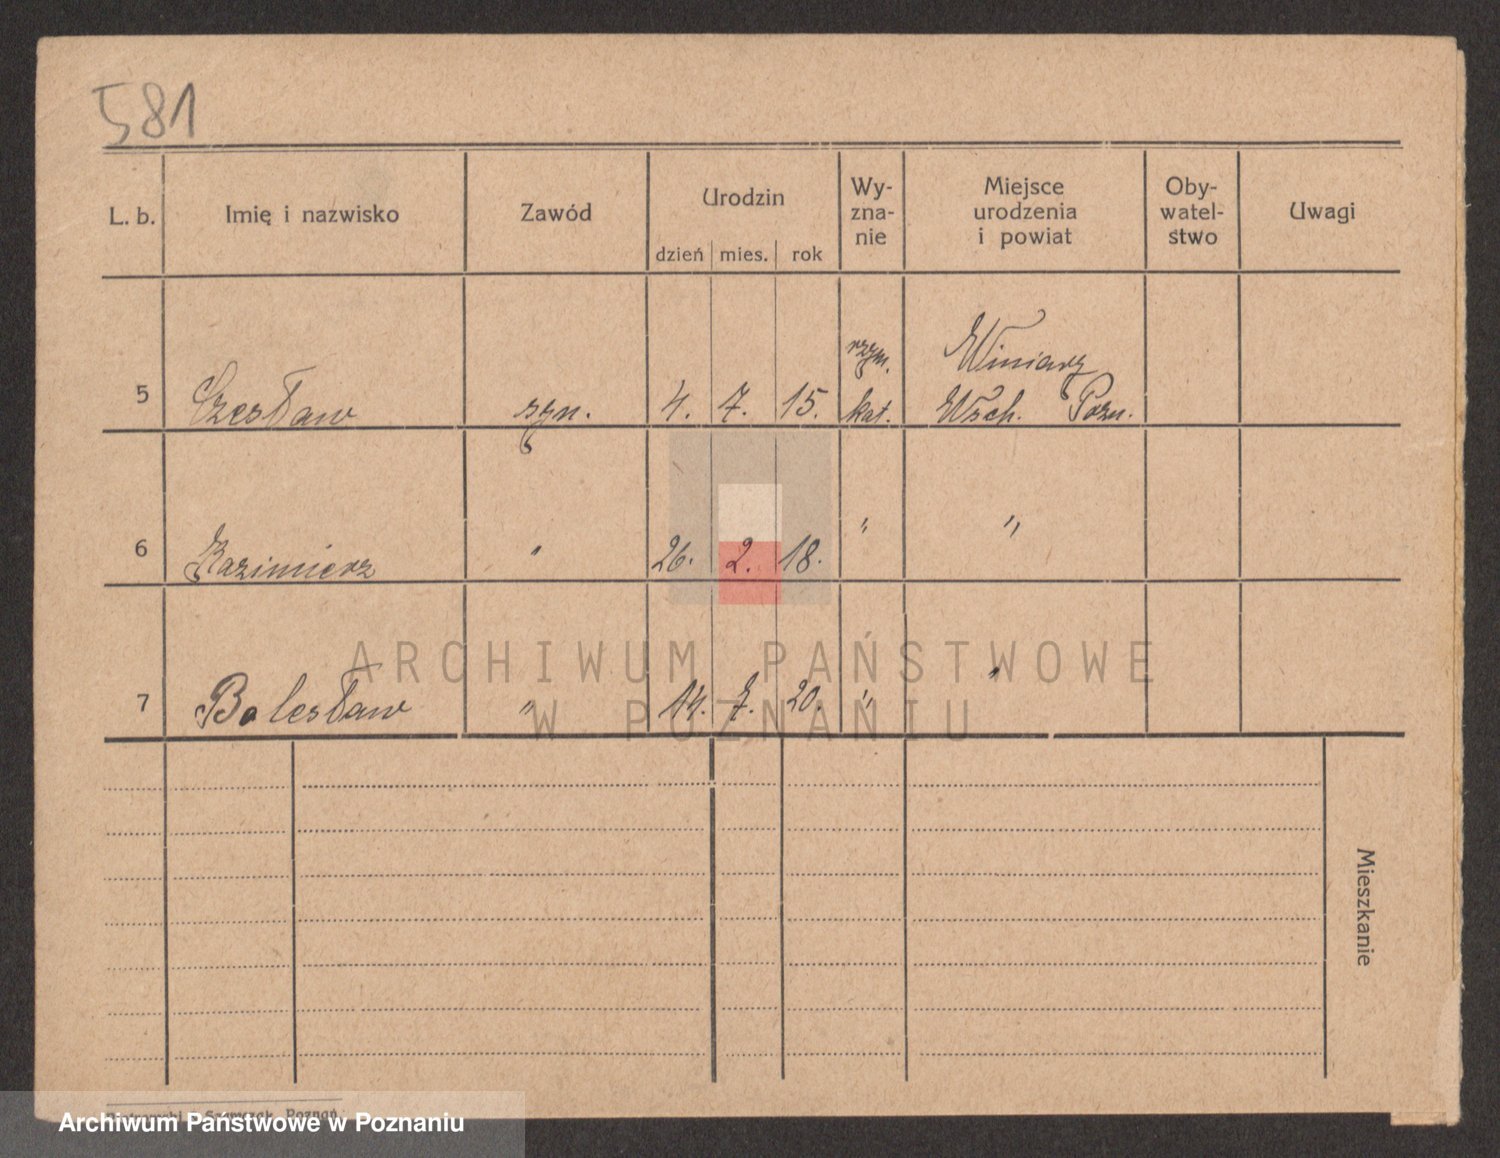 581
L. b. Imię i nazwisko Zawód Urodzin Wy-zna-nie Miejsce urodzenia i powiat Oby-watel-stwo Uwagi
dzień mies. rok
rzym. Winiary
5 Czesław syn. 4. 7. 15. kat. Wsch. Pozn.
6 Kazimierz " 26. 2. 18. " "
7 Bolesław " 14. 7. 20. " "
Mieszkanie
ARCHIWUM PAŃSTWOWE
W POZNANIU
Poznań
Archiwum Państwowe w Poznaniu